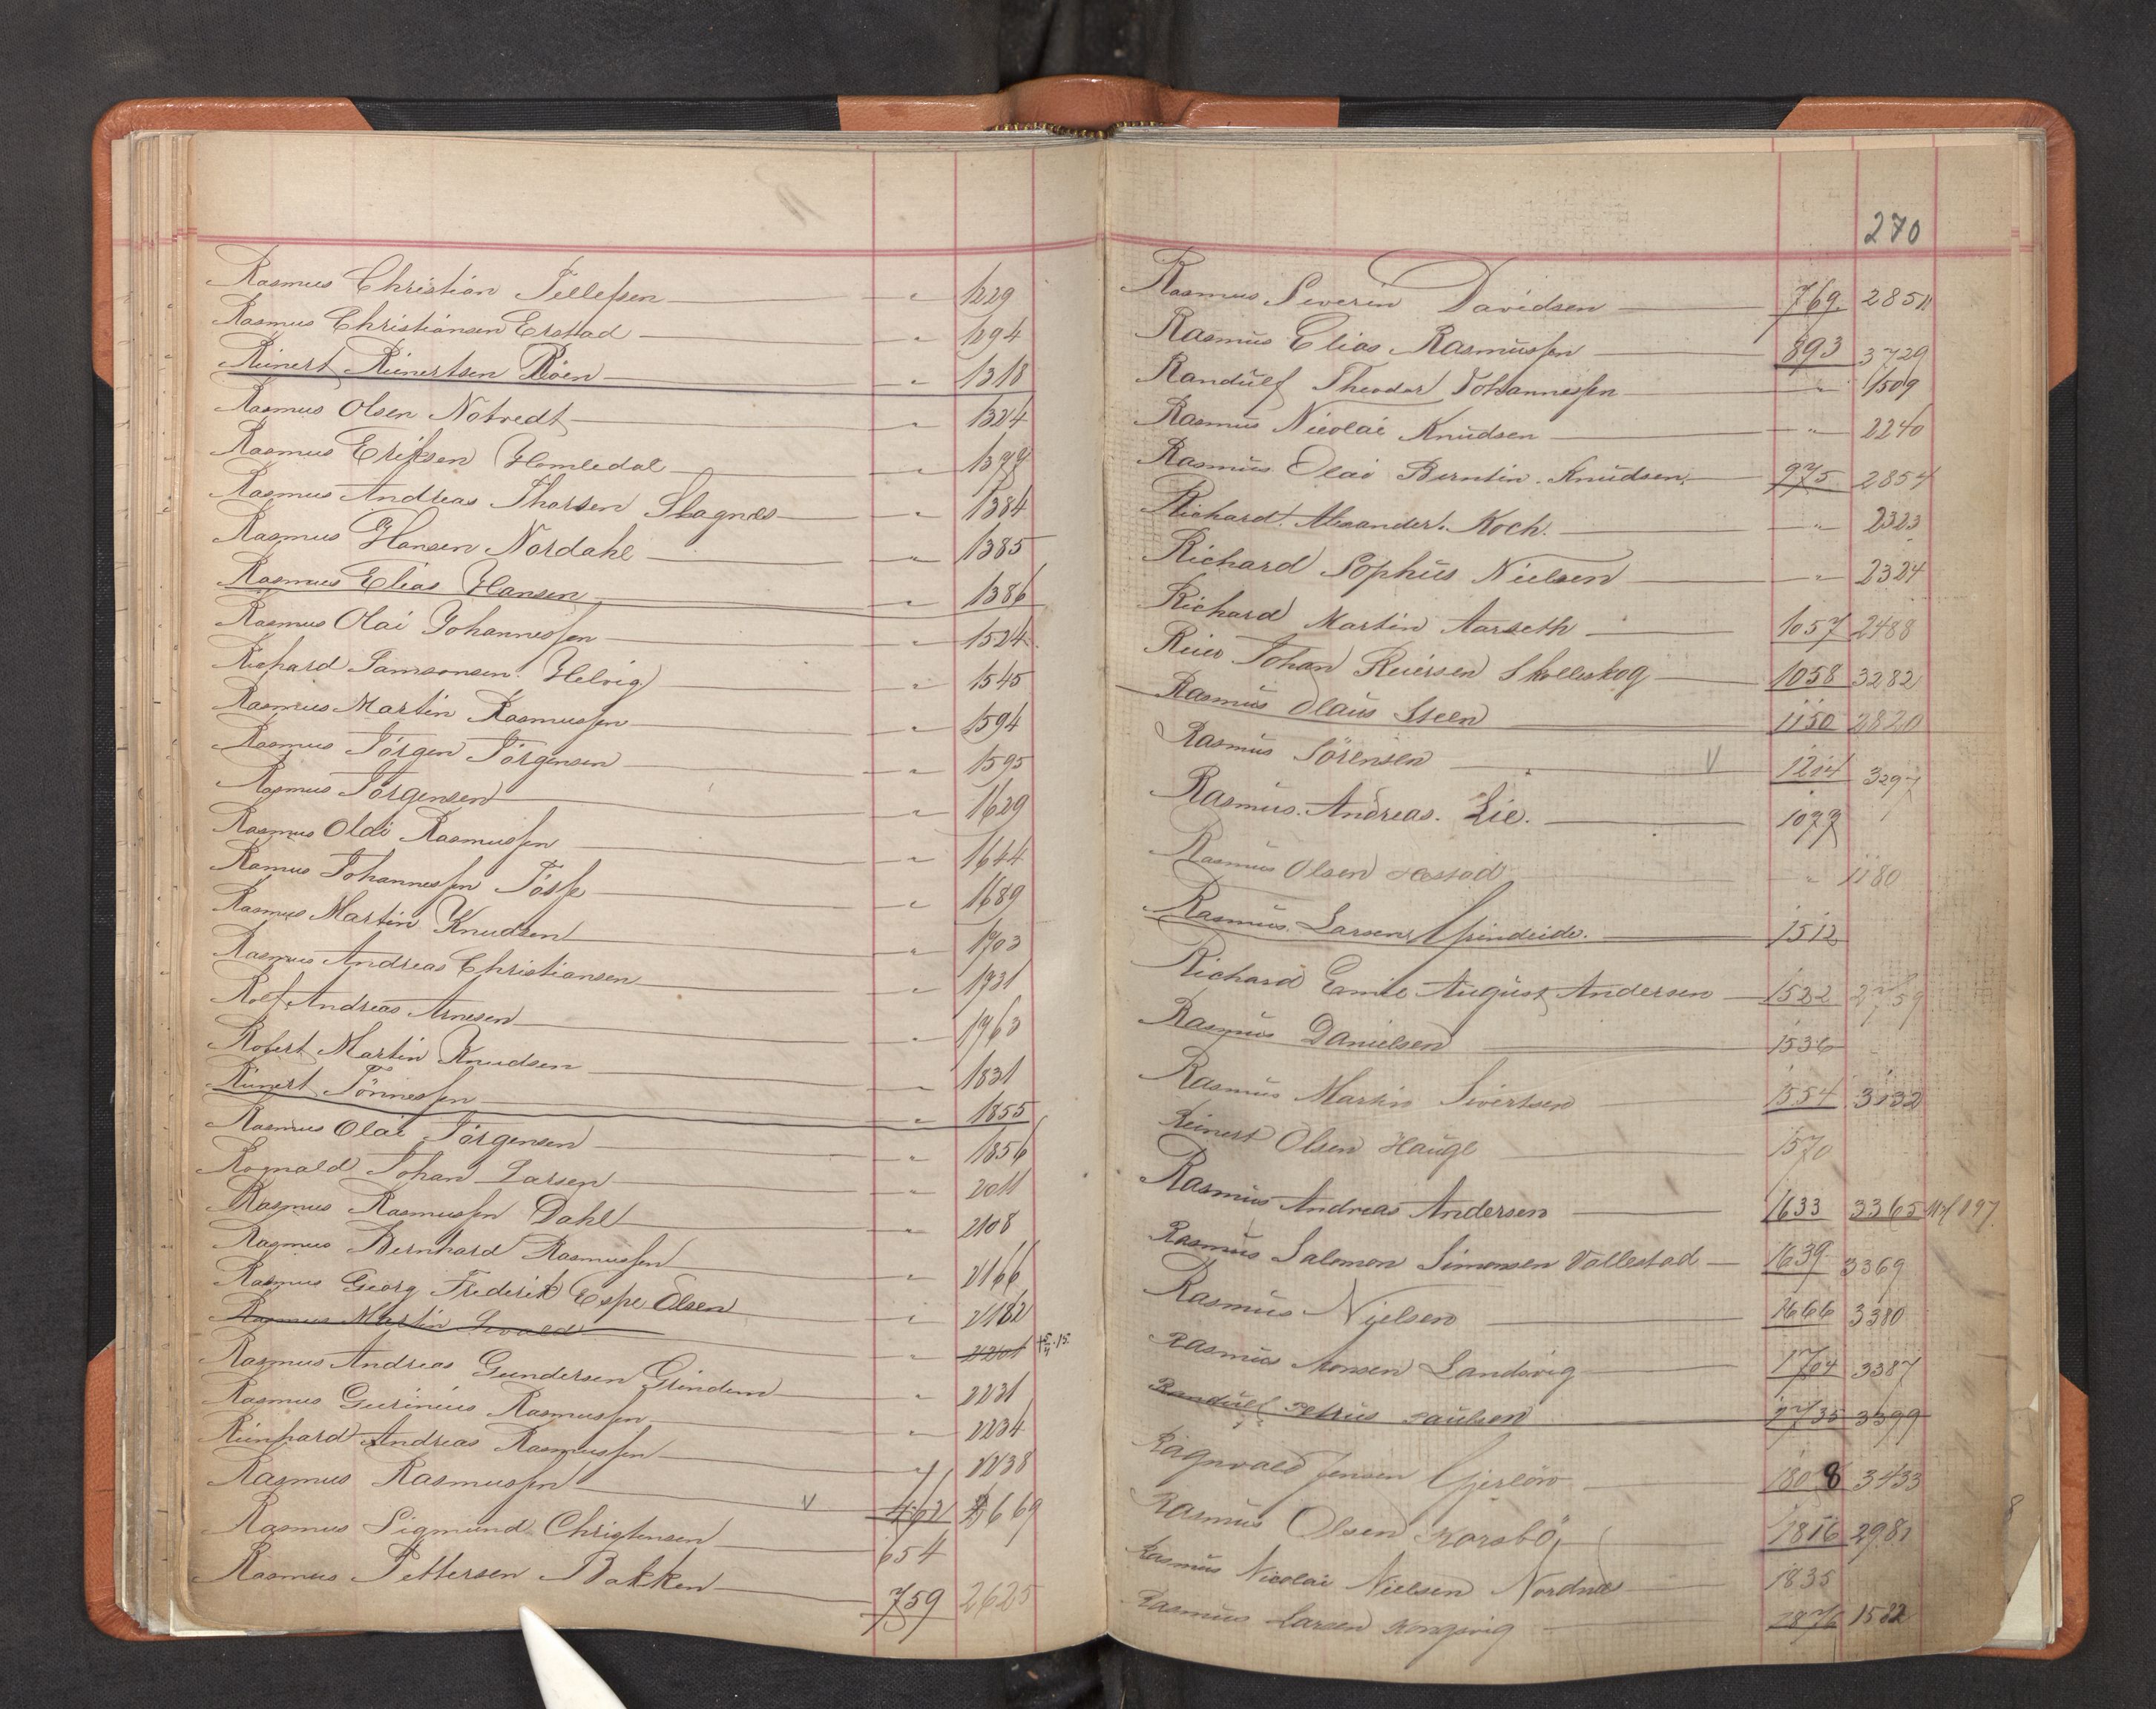 Rasmus Christian Tellefsen " 1229
Rasmus Christiansen Erstad " 1294
Reinert Reinertsen Röen " 1318
Rasmus Olsen Notvedt " 1324
Rasmus Eriksen Homledal " 1377
Rasmus Andreas Thorsen Skagnæs " 1384
Rasmus Hansen Nordahl " 1385
Rasmus Elias Hansen " 1386
Rasmus Olai Johannessen " 1524
Richard Samsonsen Helvig " 1545
Rasmus Martin Rasmussen " 1594
Rasmus Jörgen Jörgensen " 1595
Rasmus Jörgensen " 1629
Rasmus Olai Rasmussen " 1644
Rasmus Johannessen Jösse " 1689
Rasmus Martin Knudsen " 1703
Rasmus Andreas Christiansen " 1731
Rolf Andreas Arnesen " 1763
Robert Martin Knudsen " 1831
Reinert Tönnessen " 1855
Rasmus Olai Jörgensen " 1856
Rognald Johan Larsen " 2011
Rasmus Rasmussen Dahl " 2108
Rasmus Bernhard Rasmussen " 2166
Rasmus Georg Frederik Espe Olsen " 2182
Rasmus Martin " 2201
Rasmus Andreas Gundersen Grindem " 2231
Rasmus Gurinius Rasmussen " 2234
Reinhard Andreas Rasmussen " 2238
Rasmus Rasmussen V 462 2669
Rasmus Sigmund Christensen 654
Rasmus Pettersen Bakken 759 2625
270
Rasmus Severin Davidsen 769 2851
Rasmus Elias Rasmussen 893 3729
Randulf Theodor Johannessen " 1509
Rasmus Nicolai Knudsen " 2240
Rasmus Olai Berntin Knudsen 975 2854
Richard Alexander Koch. " 2323
Richard Sophus Nielsen " 2324
Richard Martin Aarseth 1057 2488
Reier Johan Reiersen Skolleskog 1058 3282
Rasmus Olaus Steen 1150 2820
Rasmus Sörensen V 1214 3297
Rasmus Andreas Lie. 1077
Rasmus Olsen " 1180
Rasmus Larsen Grindeide. 1512
Richard Emil August Andersen 1522 2759
Rasmus Danielsen 1536
Rasmus Martin Sivertsen 1554 3132
Reinert Olsen Hauge 1570
Rasmus Andreas Andersen 1633 3365
Rasmus Salomon Simonsen Vallestad 1639 3369
Rasmus Nielsen 1666 3380
Rasmus Monsen Landsvig 1704 3387
Randulf Petrus Paulsen 1735 3399
Ragnvald Jensen Gjerlöw 1808 3433
Rasmus Olsen Korsbö 1816 2981
Rasmus Nicolai Nielsen Nordnæs 1835
Rasmus Larsen Kongsvig 1876 1582